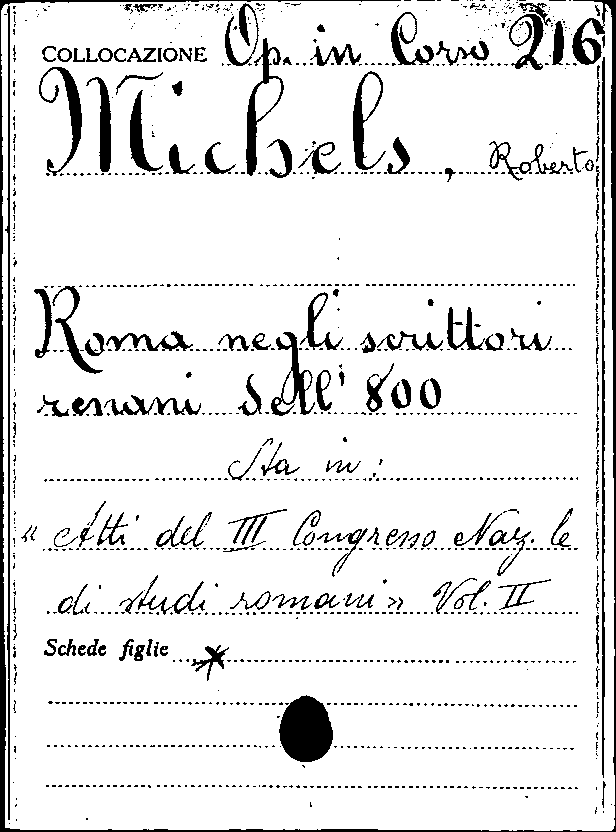 COLLOCAZIONE Op. in Corso 216
Michels, Roberto
Roma negli scrittori
renani dell' 800
Sta in:
« Atti del III Congresso Naz.le
di studi romani» Vol. II
Schede figlie